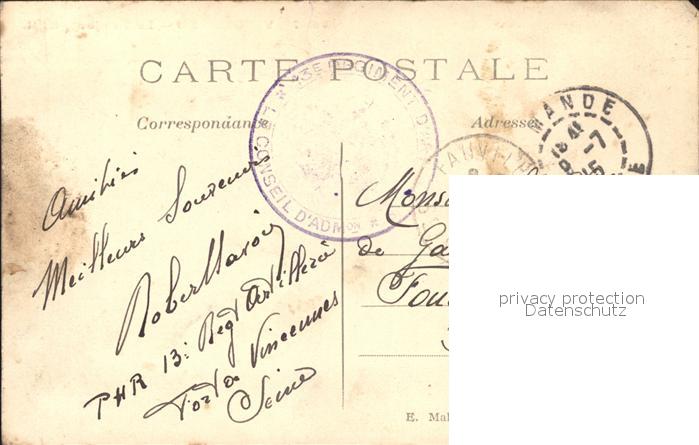 CARTE POSTALE
Correspondance
Adresse
13E REGIMENT D'AR
LE CONSEIL D'ADMON
MANDE
Amitiés
Meilleurs Souvenirs
Robert
PHR 13e Regt Artillerie
Fort de Vincennes
Seine
de Ga
Fou
E. Mal
privacy protection
Datenschutz